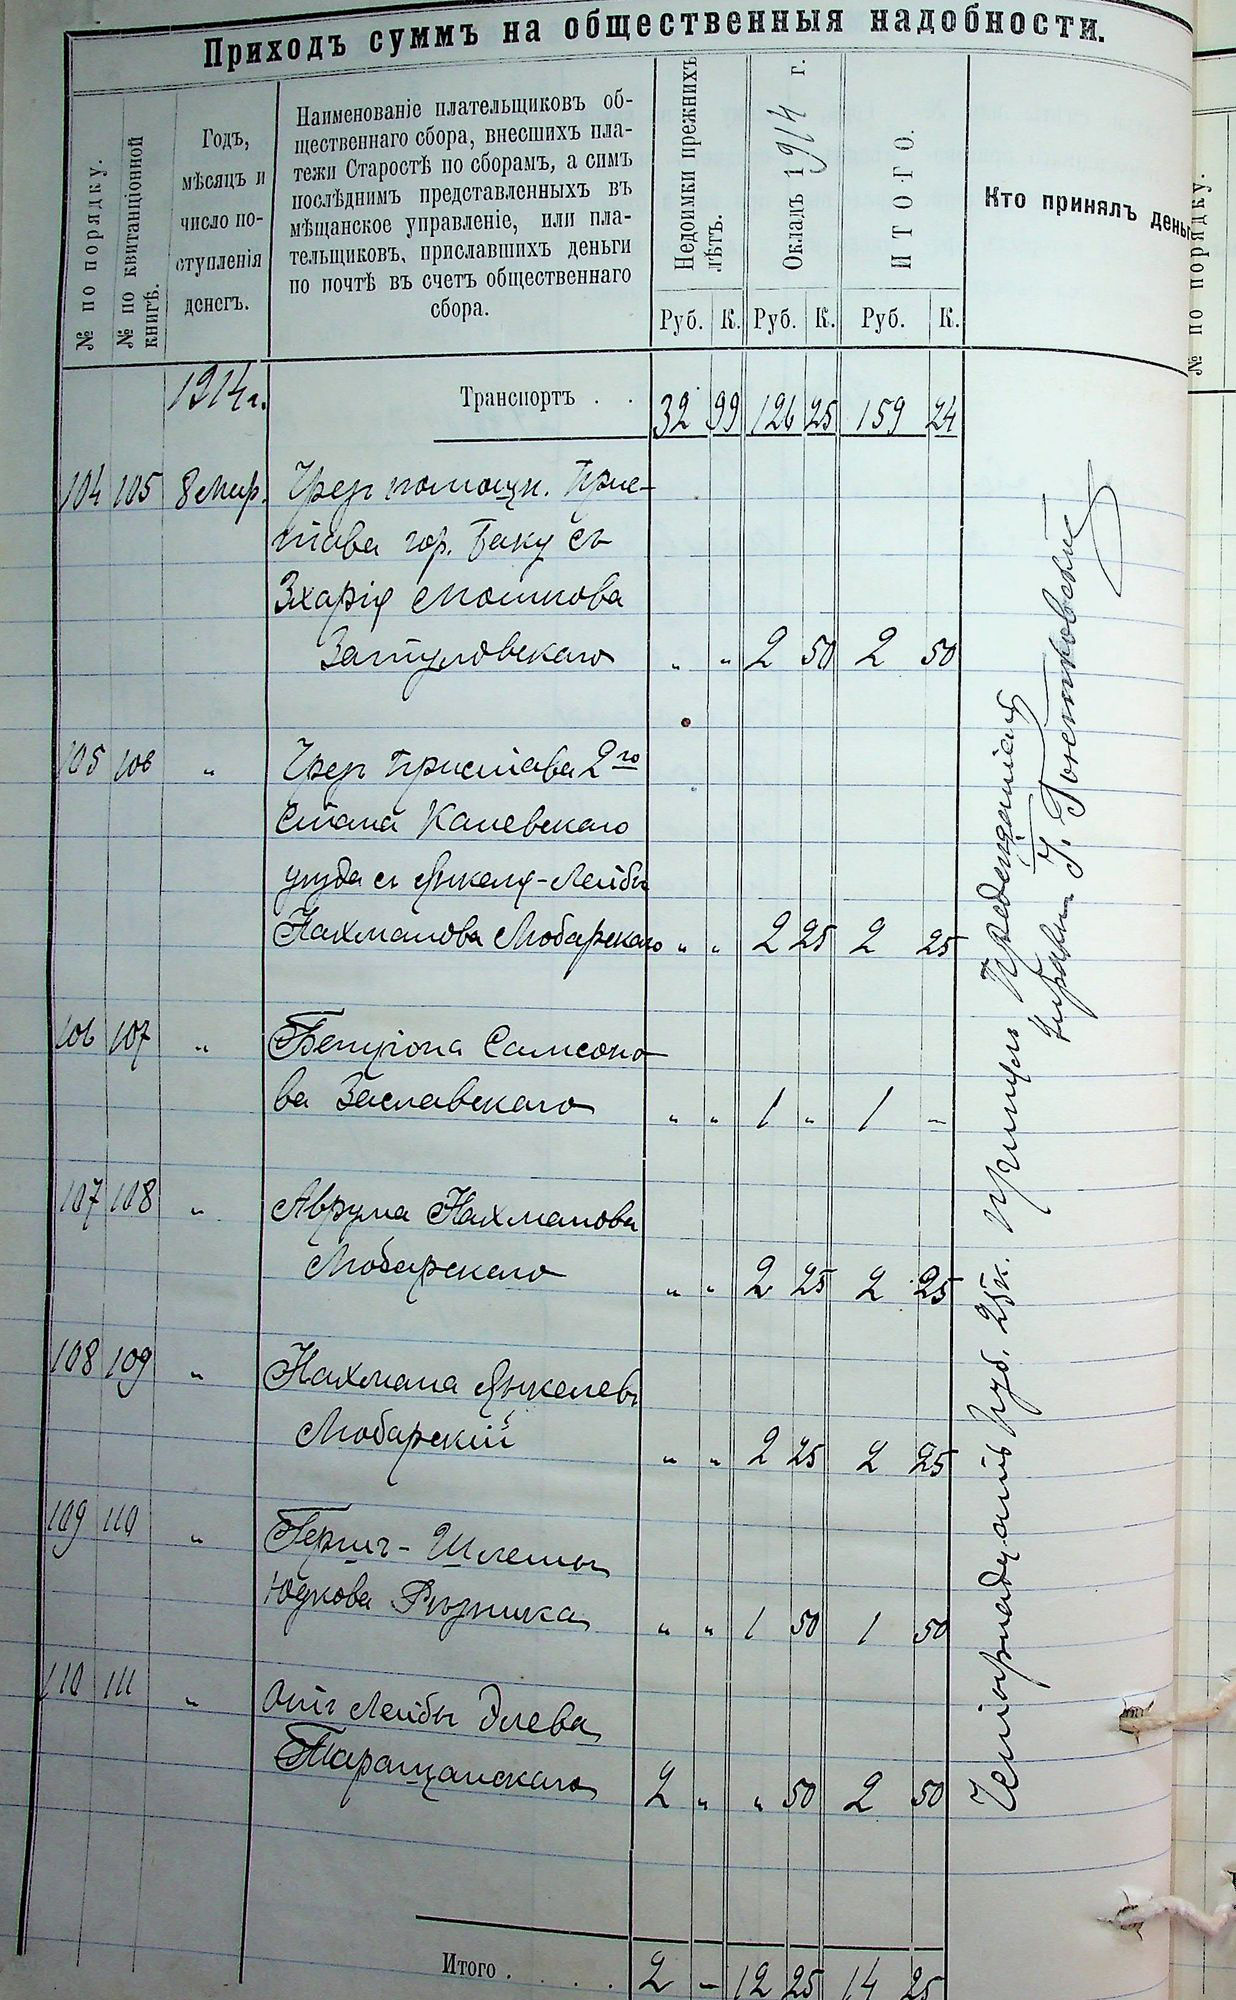 Приходъ суммъ на общественныя надобности.
№ по порядку.
№ по квитанціонной
книгѣ.
Годъ,
мѣсяцъ и
число по-
ступленія
денегъ.
Наименованіе плательщиковъ об-
щественнаго сбора, внесшихъ пла-
тежи Старостѣ по сборамъ, а симъ
послѣднимъ представленныхъ въ
мѣщанское управленіе, или пла-
тельщиковъ, приславшихъ деньги
по почтѣ въ счетъ общественнаго
сбора.
Недоимки прежнихъ
лѣтъ.
Окладъ 1914 г.
ИТОГО.
Кто принялъ деньг
Руб. К. Руб. К. Руб. К.
№ по порядку.
1914 г. Транспортъ . . 32 99 126 25 159 24
104 105 8 Мар. Чрез помощн. Прис-
тава гор. Баку съ
Зхарія Мошкова
Затуловскаго " " 2 50 2 50
105 106 " Чрез Пристава 2го
Стана Каневскаго
уезда съ Янкеля-Лейбы
Нахманова Любарскаго " " 2 25 2 25
106 107 " Бенціона Самсоно-
ва Заславскаго " " 1 " 1 -
107 108 " Аврума Нахманова
Любарскаго " " 2 25 2 25
108 109 " Нахмана Янкелевъ
Любарскій " " 2 25 2 25
109 110 " Герш-Шлемы
Юдкова Рѣзника " " 1 50 1 50
110 111 " Отъ Лейбы Элева
Таращанскаго 2 " " 50 2 50
Итого . . . . 2 - 12 25 14 25
Четырнадцать руб. 25 к. принялъ